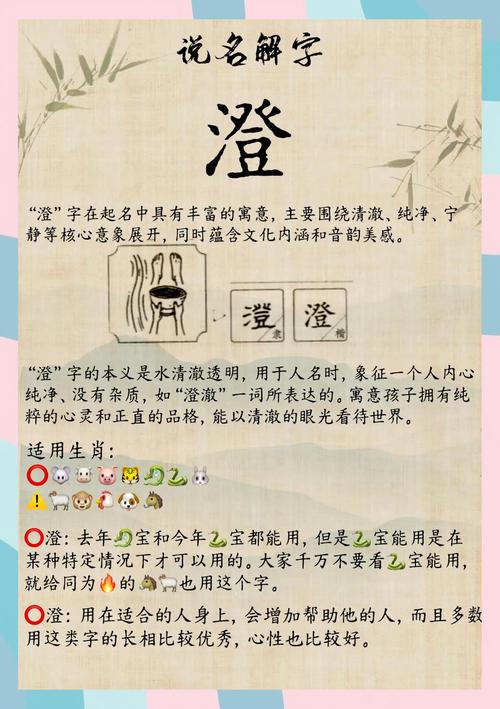 说名解字
澄
“澄”字在起名中具有丰富的寓意,主要围绕清澈、纯净、宁
静等核心意象展开,同时蕴含文化内涵和音韵美感。
澄 隶 澄 楷
“澄”字的本义是水清澈透明,用于人名时,象征一个人内心
纯净、没有杂质,如“澄澈”一词所表达的。寓意孩子拥有纯
粹的心灵和正直的品格,能以清澈的眼光看待世界。
适用生肖:
⭕🐭🐮🐷🐯🐉🐍🐰
⚠️🐑🐵🐔🐶🐴
⭕澄:去年🐉宝和今年🐍宝都能用,但是🐍宝能用是在
某种特定情况下才可以用的。大家千万不要看🐍宝能用,
就给同为🔥的🐴🐑也用这个字。
⭕澄:用在适合的人身上,会增加帮助他的人,而且多数
用这类字的长相比较优秀,心性也比较好。